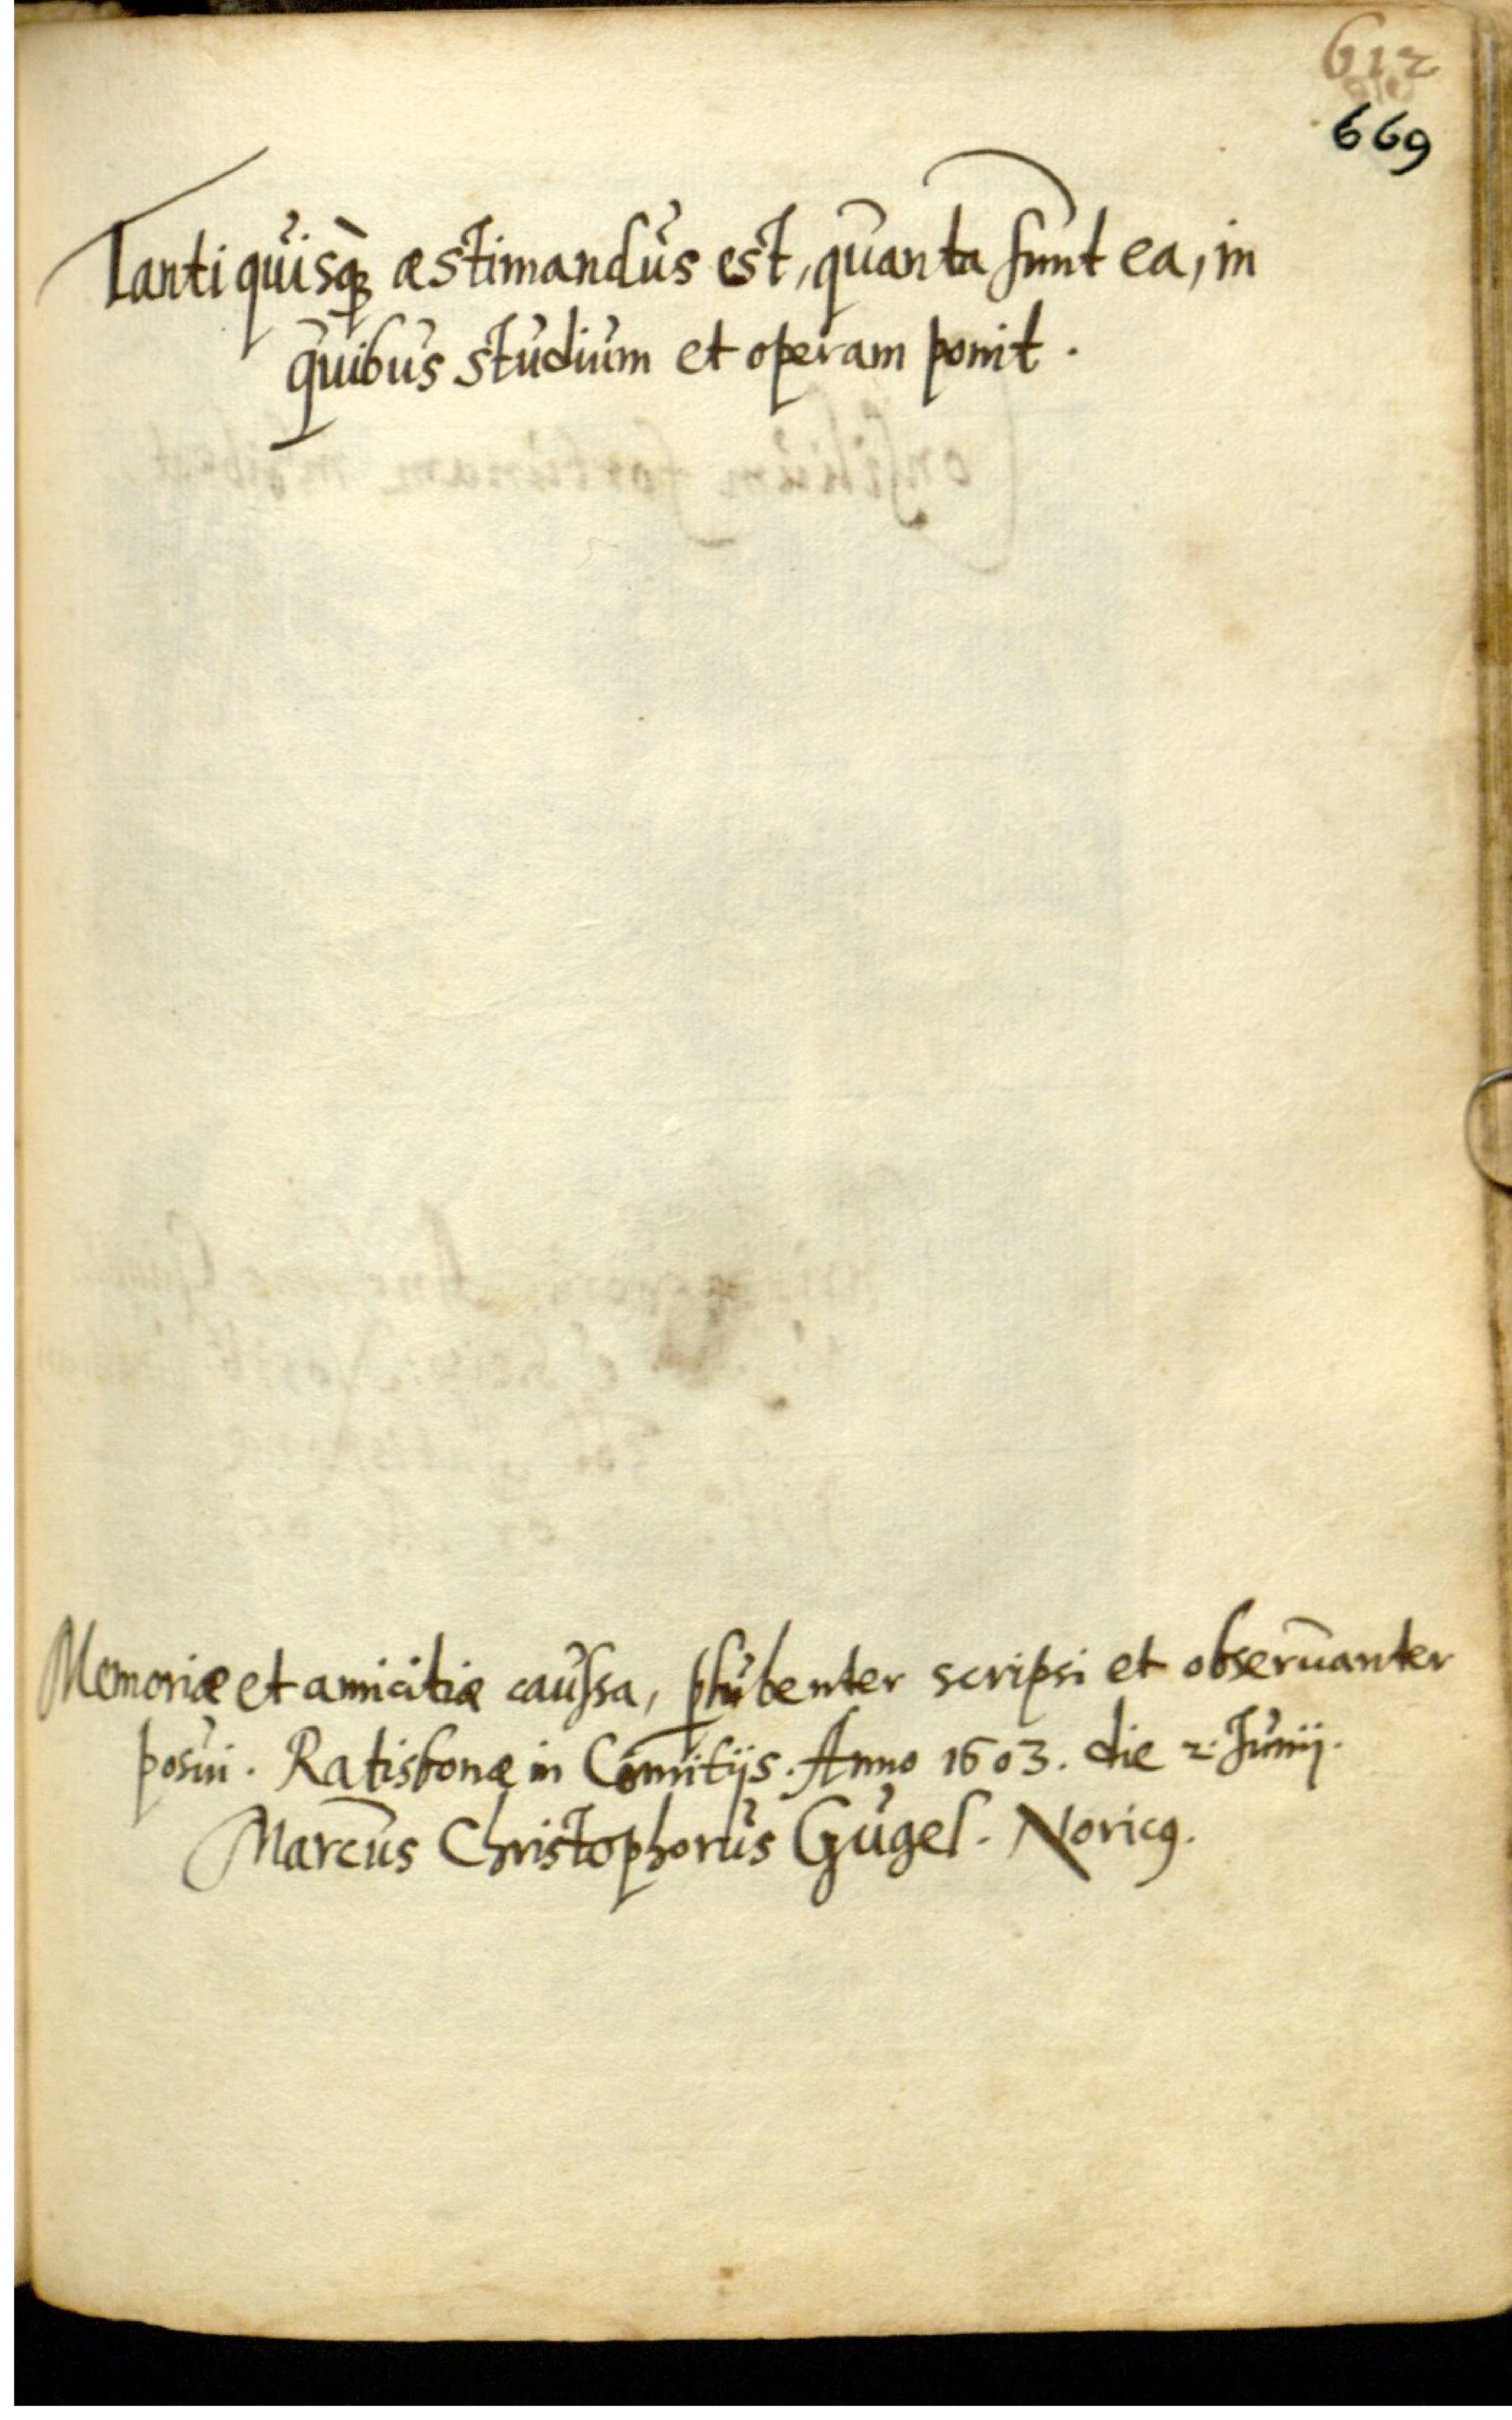 612
669
Tanti quisq́ue æstimandus est, quanta sunt ea, in
quibus studium et operam ponit.
Memoriæ et amicitiæ caussa, plubenter scripsi et obseruanter
posui. Ratisbonæ in Comitijs. Anno 1603. die 2. Junij.
Marcus Christophorus Gugel. Noricꝰ.